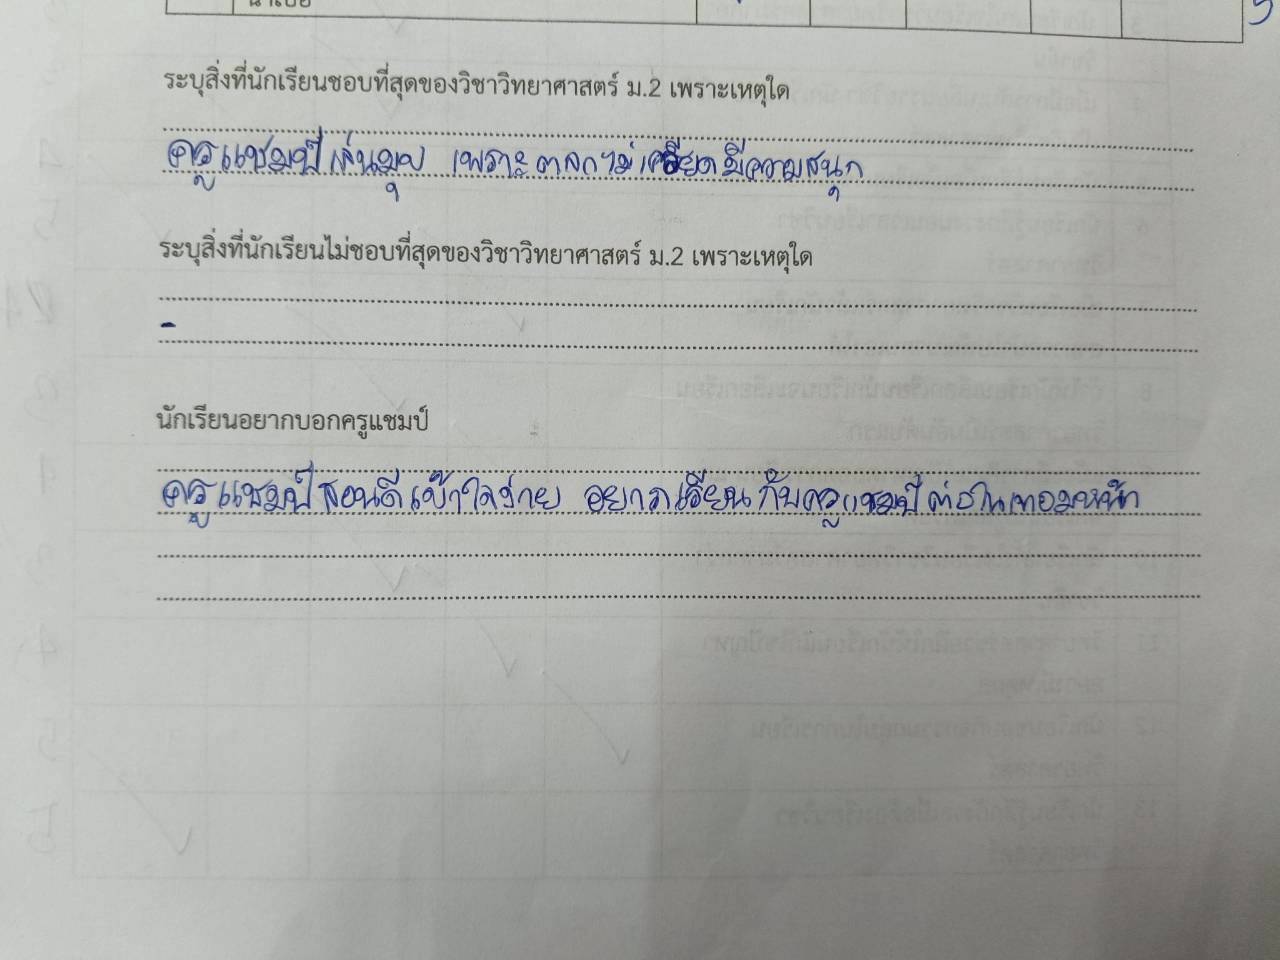 น่าเบื่อ
ระบุสิ่งที่นักเรียนชอบที่สุดของวิชาวิทยาศาสตร์ ม.2 เพราะเหตุใด
ครูแชมป์เล่นมุข เพราะตลกไม่เครียดมีความสนุก
ระบุสิ่งที่นักเรียนไม่ชอบที่สุดของวิชาวิทยาศาสตร์ ม.2 เพราะเหตุใด
-
นักเรียนอยากบอกครูแชมป์
ครูแชมป์สอนดีเข้าใจง่าย อยากเรียนกับครูแชมป์ต่อในเทอมหน้า